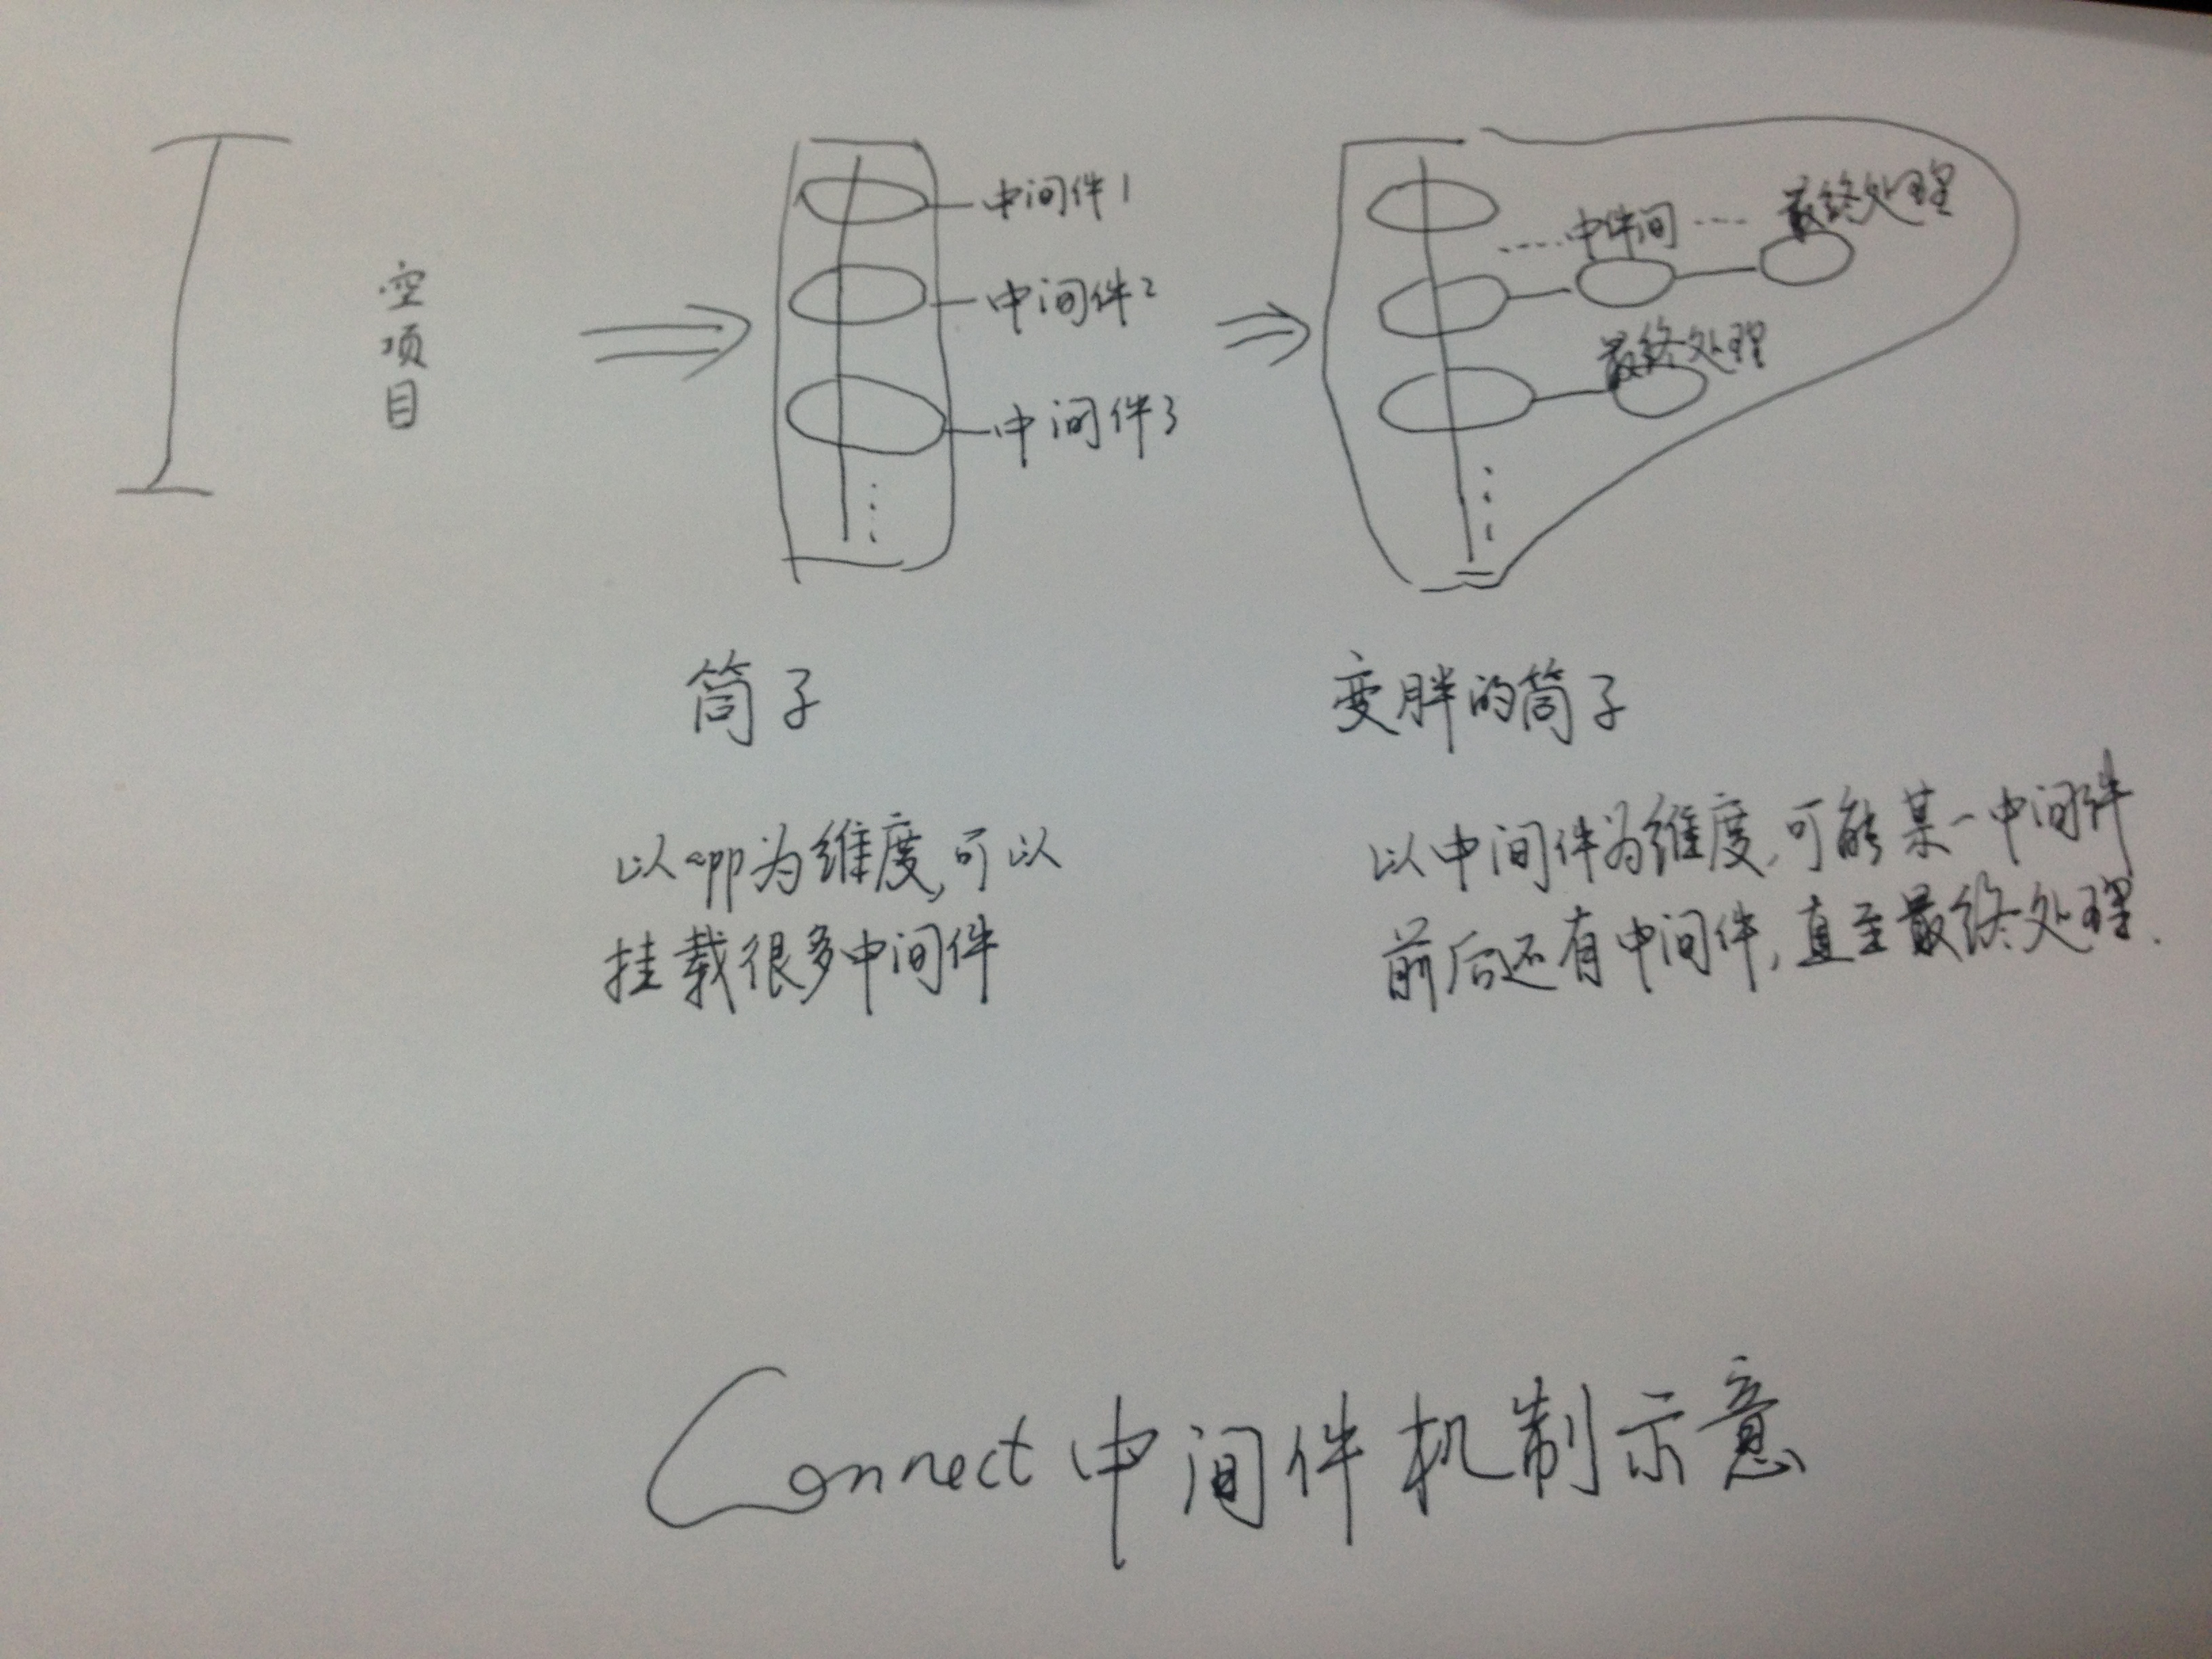 空项目
中间件1
中间件2
中间件3
中件间
最终处理
最终处理
筒子
以app为维度,可以
挂载很多中间件
变胖的筒子
以中间件为维度,可能某一中间件
前后还有中间件,直至最终处理.
Connect中间件机制示意